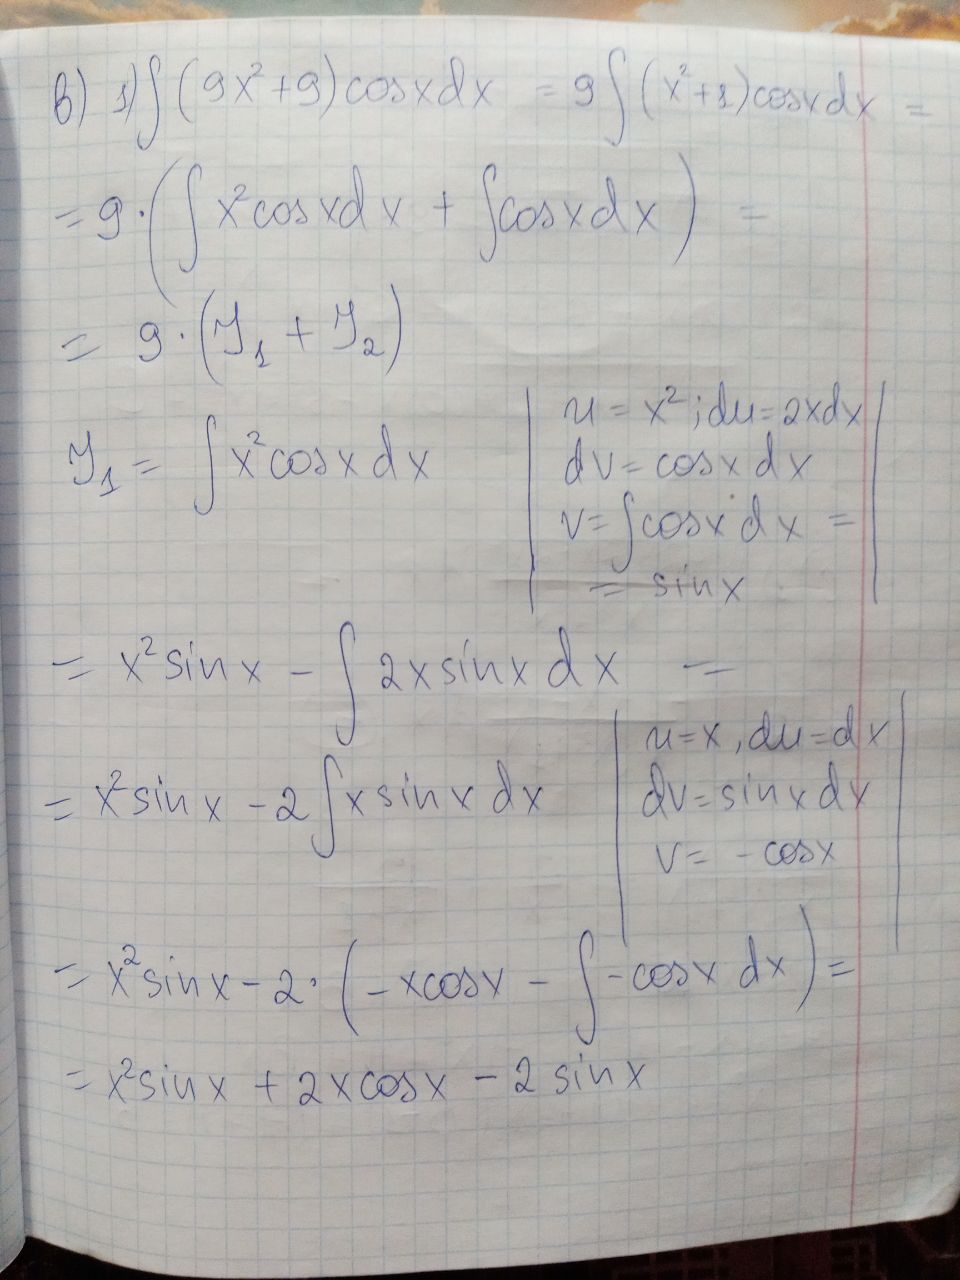 в) 1) ∫(9x²+9)cosxdx = 9∫(x²+1)cosxdx =
= 9·(∫x²cosxdx + ∫cosxdx) =
= 9·(J₁ + J₂)
J₁ = ∫x²cosxdx | u = x²; du=2xdx |
dv = cosx dx
v = ∫cosx dx =
= sinx
= x²sinx - ∫2xsinxdx =
= x²sinx - 2∫xsinxdx | u=x, du=dx |
dv=sinxdx
v= -cosx
= x²sinx - 2·(-xcosx - ∫-cosx dx) =
= x²sinx + 2xcosx - 2sinx